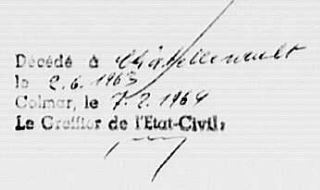 Décédé à Châtellerault
le 2.6.1963
Colmar, le 7.2.1964
Le Greffier de l'Etat-Civil: